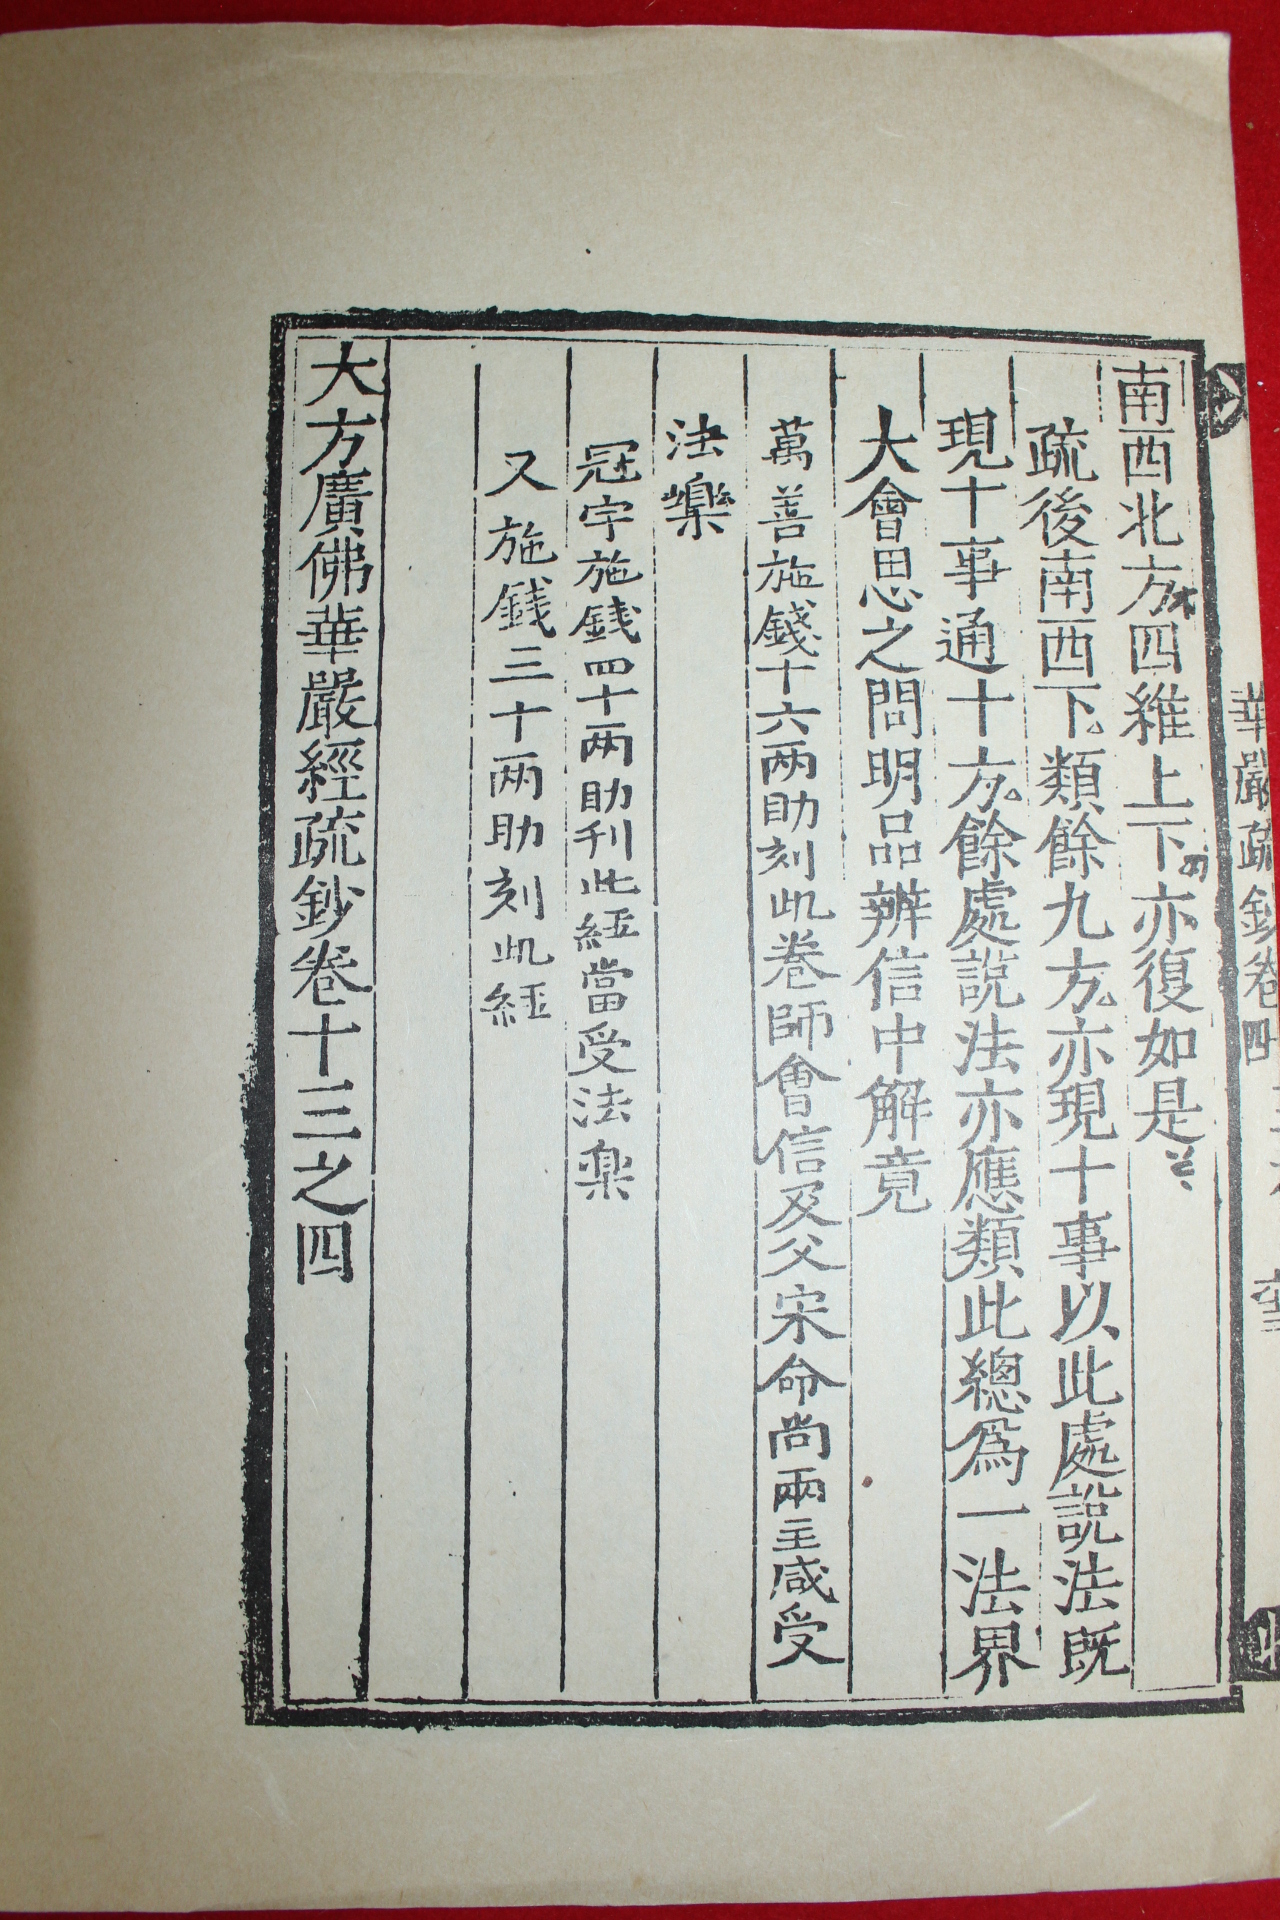 華嚴疏鈔卷四十
南西北方四維上下亦復如是
疏後南西下類餘九方亦現十事以此處說法既
現十事通十方餘處說法亦應類此總爲一法界
大會思之問明品辨信中解竟
萬善施錢十六两助刻此卷師會信及父宋命尚兩主咸受
法樂
冠宇施錢四十两助刊此経當受法楽
又施錢三十两助刻此経
大方廣佛華嚴經疏鈔卷十三之四